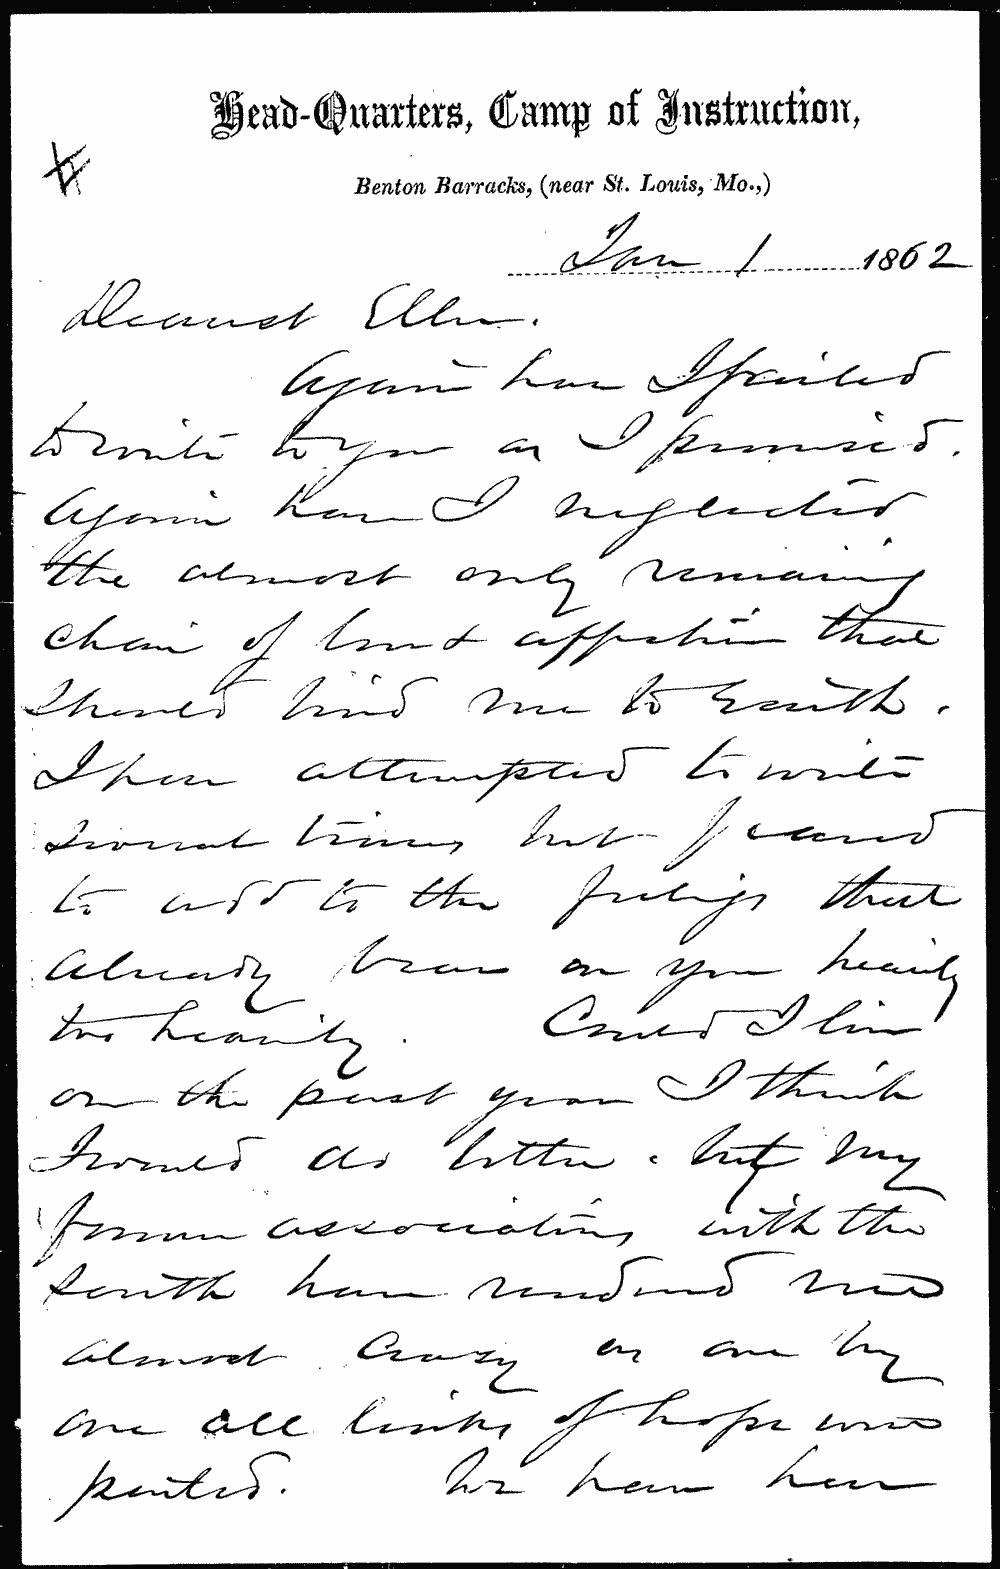 Head-Quarters, Camp of Instruction,
Benton Barracks, (near St. Louis, Mo.,)
Jan 1 1862
Dearest Ellen.
Again have I failed
to write to you as I promised.
Again have I neglected
the almost only remaining
chain of love & affection that
should bind me to Earth.
I have attempted to write
several times but feared
to add to the feelings that
already bear on you heavily
too heavily. Could I live
over the past year I think
I would do better. but my
former associations with the
South have rendered me
almost crazy as one by
one all links of hope were
parted. We have here